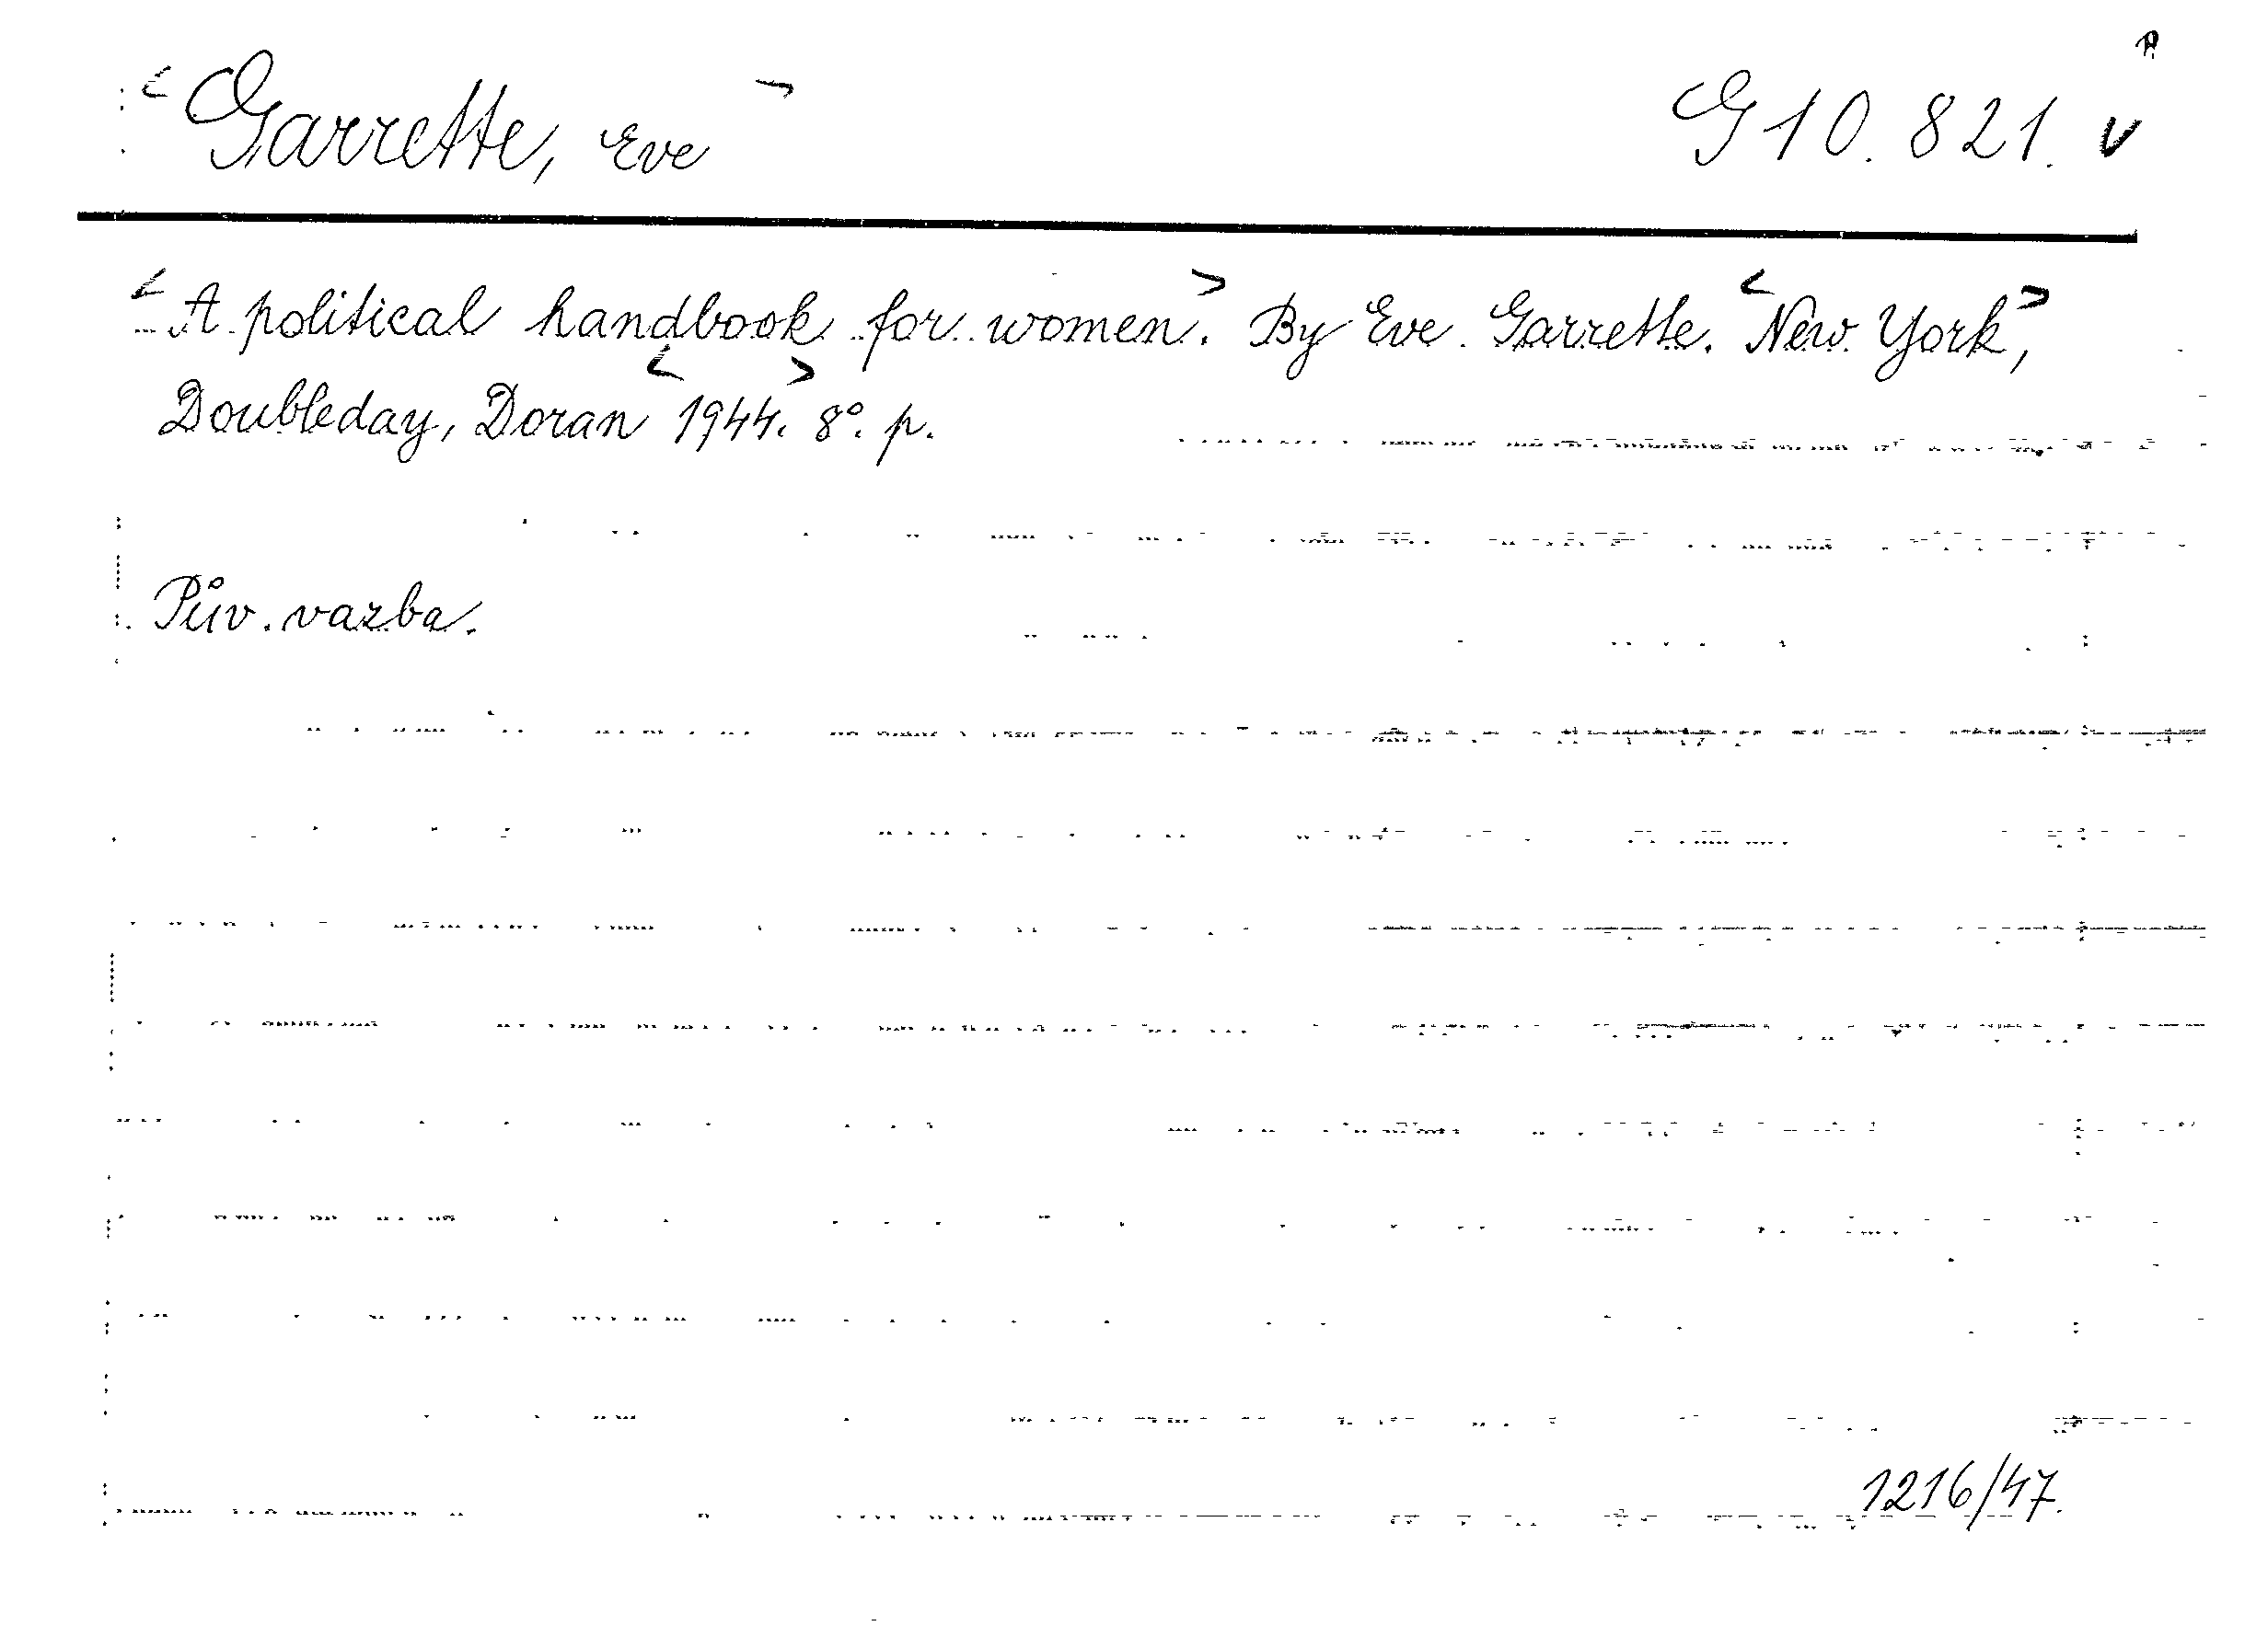 <Garrette, Eve> G 10.821. v
<A political handbook for women>. By Eve Garrette. <New York>,
Doubleday, Doran <1944>. 8°. p.
Pův. vazba.
1216/47.